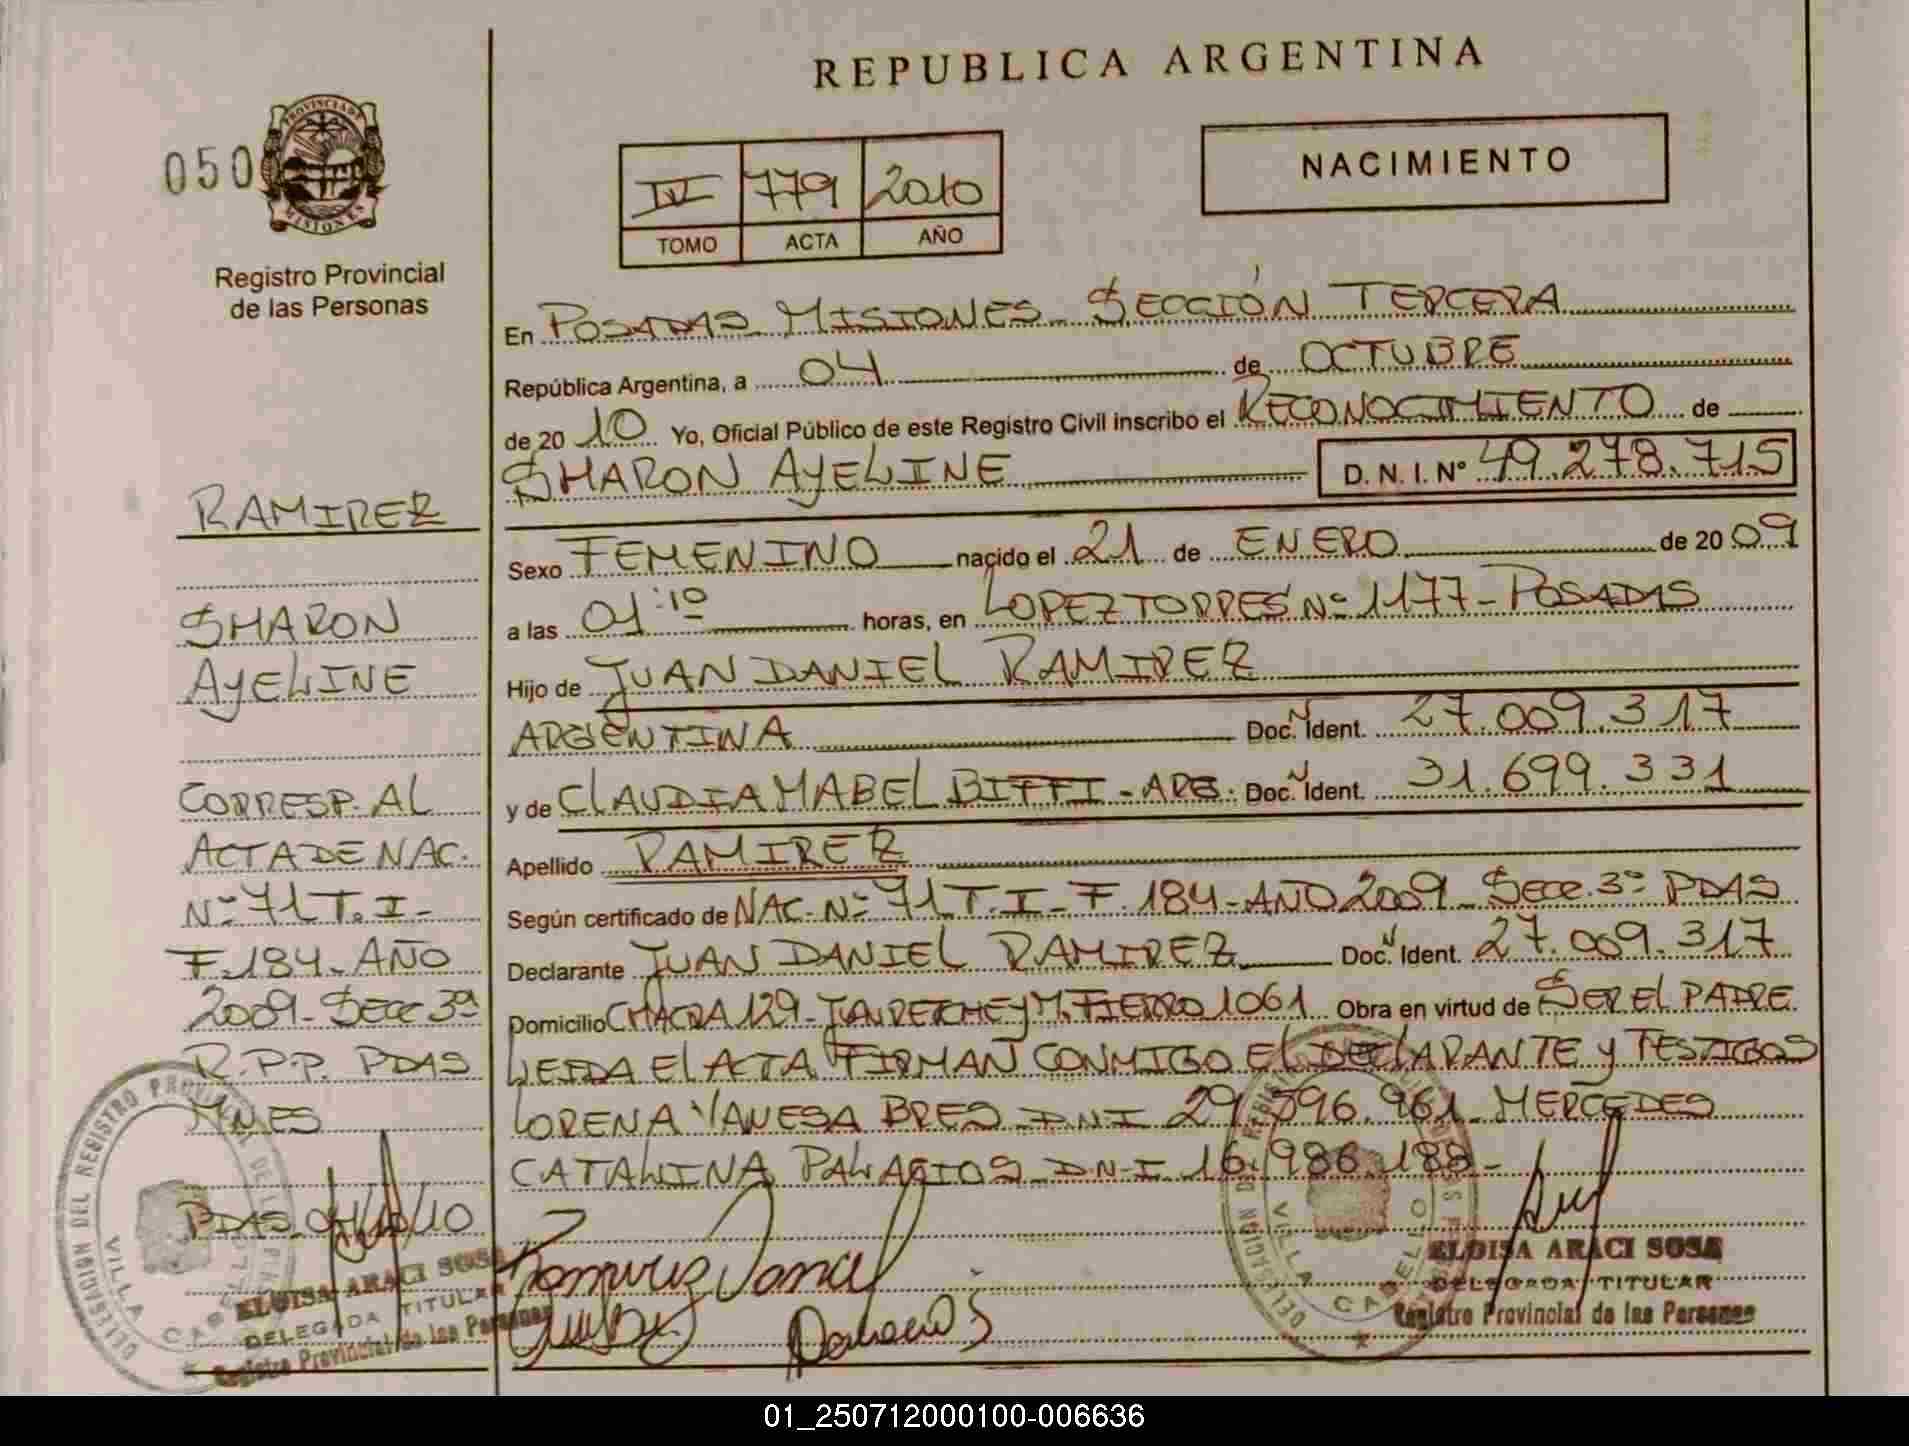 REPUBLICA ARGENTINA
050
PROVINCIA DE MISIONES
Registro Provincial
de las Personas
IV 779 2010
TOMO ACTA AÑO
NACIMIENTO
En POSADAS MISIONES - SECCIÓN TERCERA
República Argentina, a 04 de OCTUBRE
de 20 10 Yo, Oficial Público de este Registro Civil inscribo el RECONOCIMIENTO de
SHARON AYELINE D. N. I. Nº 49.278.715
Sexo FEMENINO nacido el 21 de ENERO de 20 09
a las 01:10 horas, en LOPEZ TORRES Nº 1177 - POSADAS
Hijo de JUAN DANIEL RAMIREZ
ARGENTINA Doc. N Ident. 27.009.317
y de CLAUDIA MABEL BIFFI - ARG. Doc. N Ident. 31.699.331
Apellido RAMIREZ
Según certificado de NAC. Nº 71 T. I - F. 184 - AÑO 2009 - SECC. 3º PDAS
Declarante JUAN DANIEL RAMIREZ Doc. N Ident. 27.009.317
Domicilio CHACRA 129 - M. FIERRO 1061 Obra en virtud de SER EL PADRE
LEIDA EL ACTA FIRMAN CONMIGO EL DECLARANTE Y TESTIGOS
LORENA VANESA BRES D.N.I 29.596.961 - MERCEDES
CATALINA PALACIOS D.N.I. 16.986.188 -
RAMIREZ
SHARON
AYELINE
CORRESP. AL
ACTA DE NAC.
Nº 71 T. I -
F. 184 - AÑO
2009 - SECC 3ª
R.P.P. PDAS
MNES
PDAS 04/10/10
DELEGACION DEL REGISTRO PROVINCIAL DE LAS PERSONAS
VILLA CABELLO
ELOISA ARACI SOSA
DELEGADA TITULAR
Registro Provincial de las Personas
Ramirez Daniel
Palacios
DELEGACION DEL REGISTRO PROVINCIAL DE LAS PERSONAS
VILLA CABELLO
ELOISA ARACI SOSA
DELEGADA TITULAR
Registro Provincial de las Personas
01_250712000100-006636